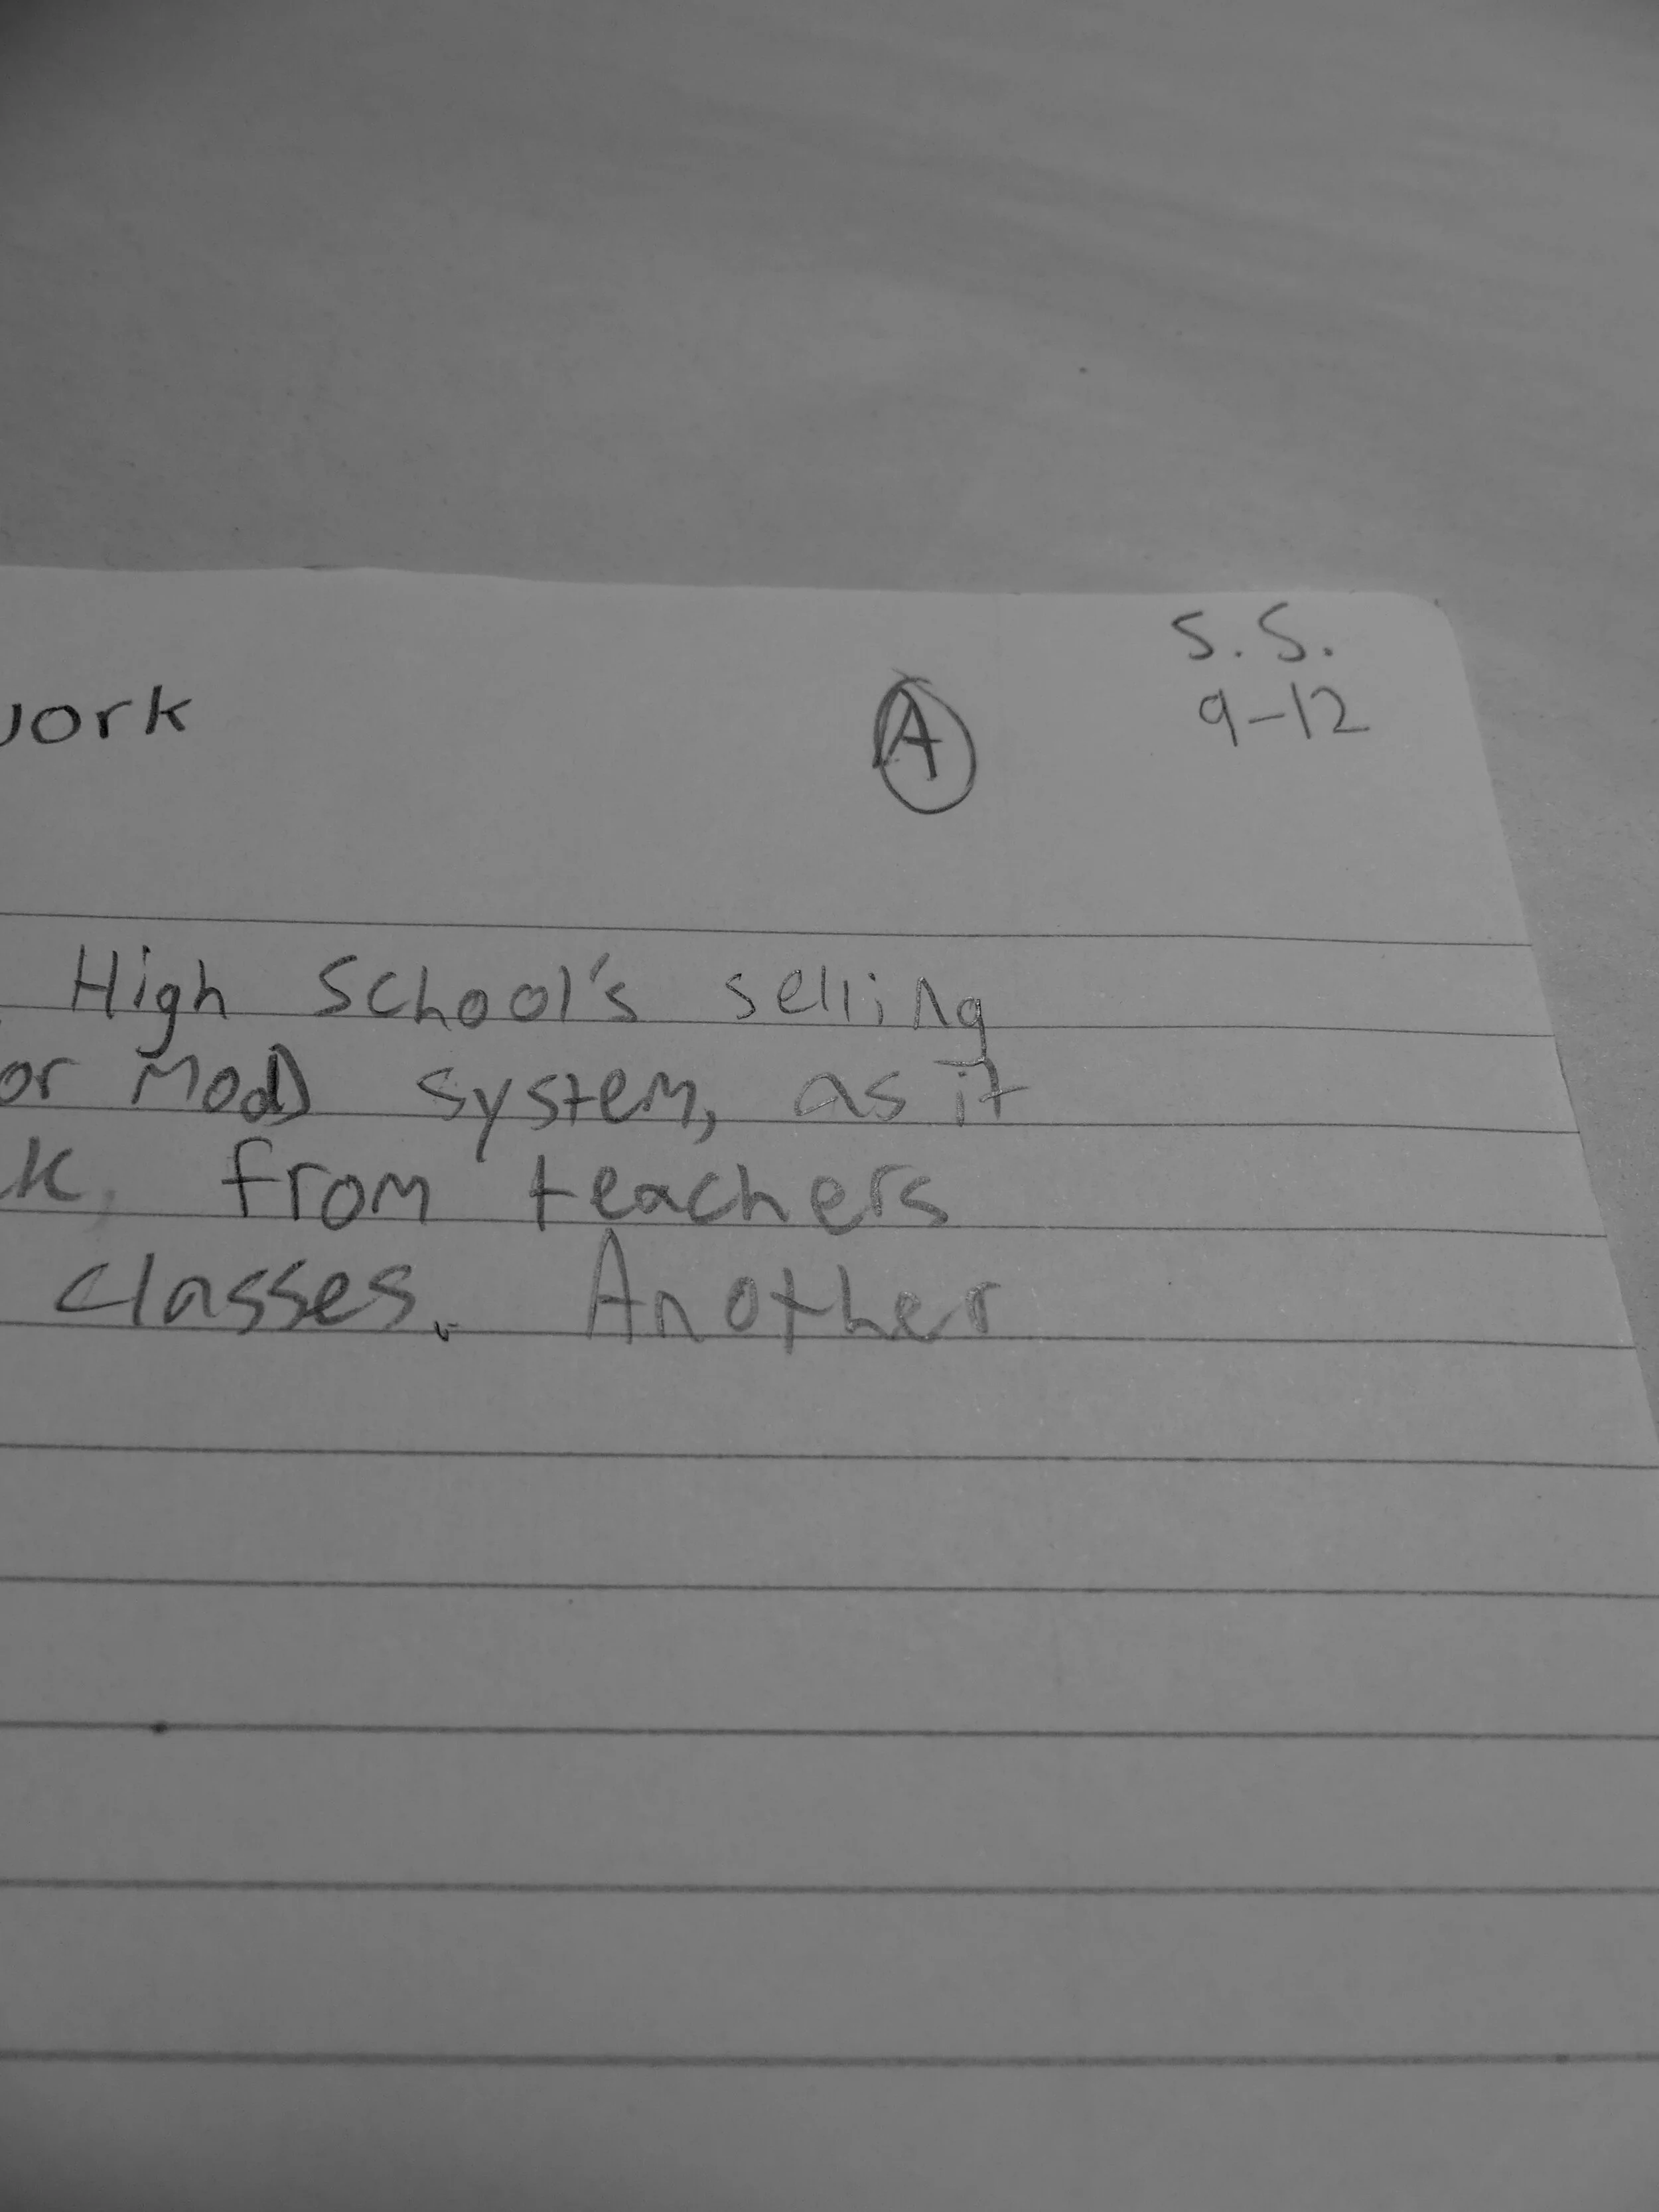 S.S.
9-12
A
High School's selling
or Mod system, as it
from teachers
classes. Another